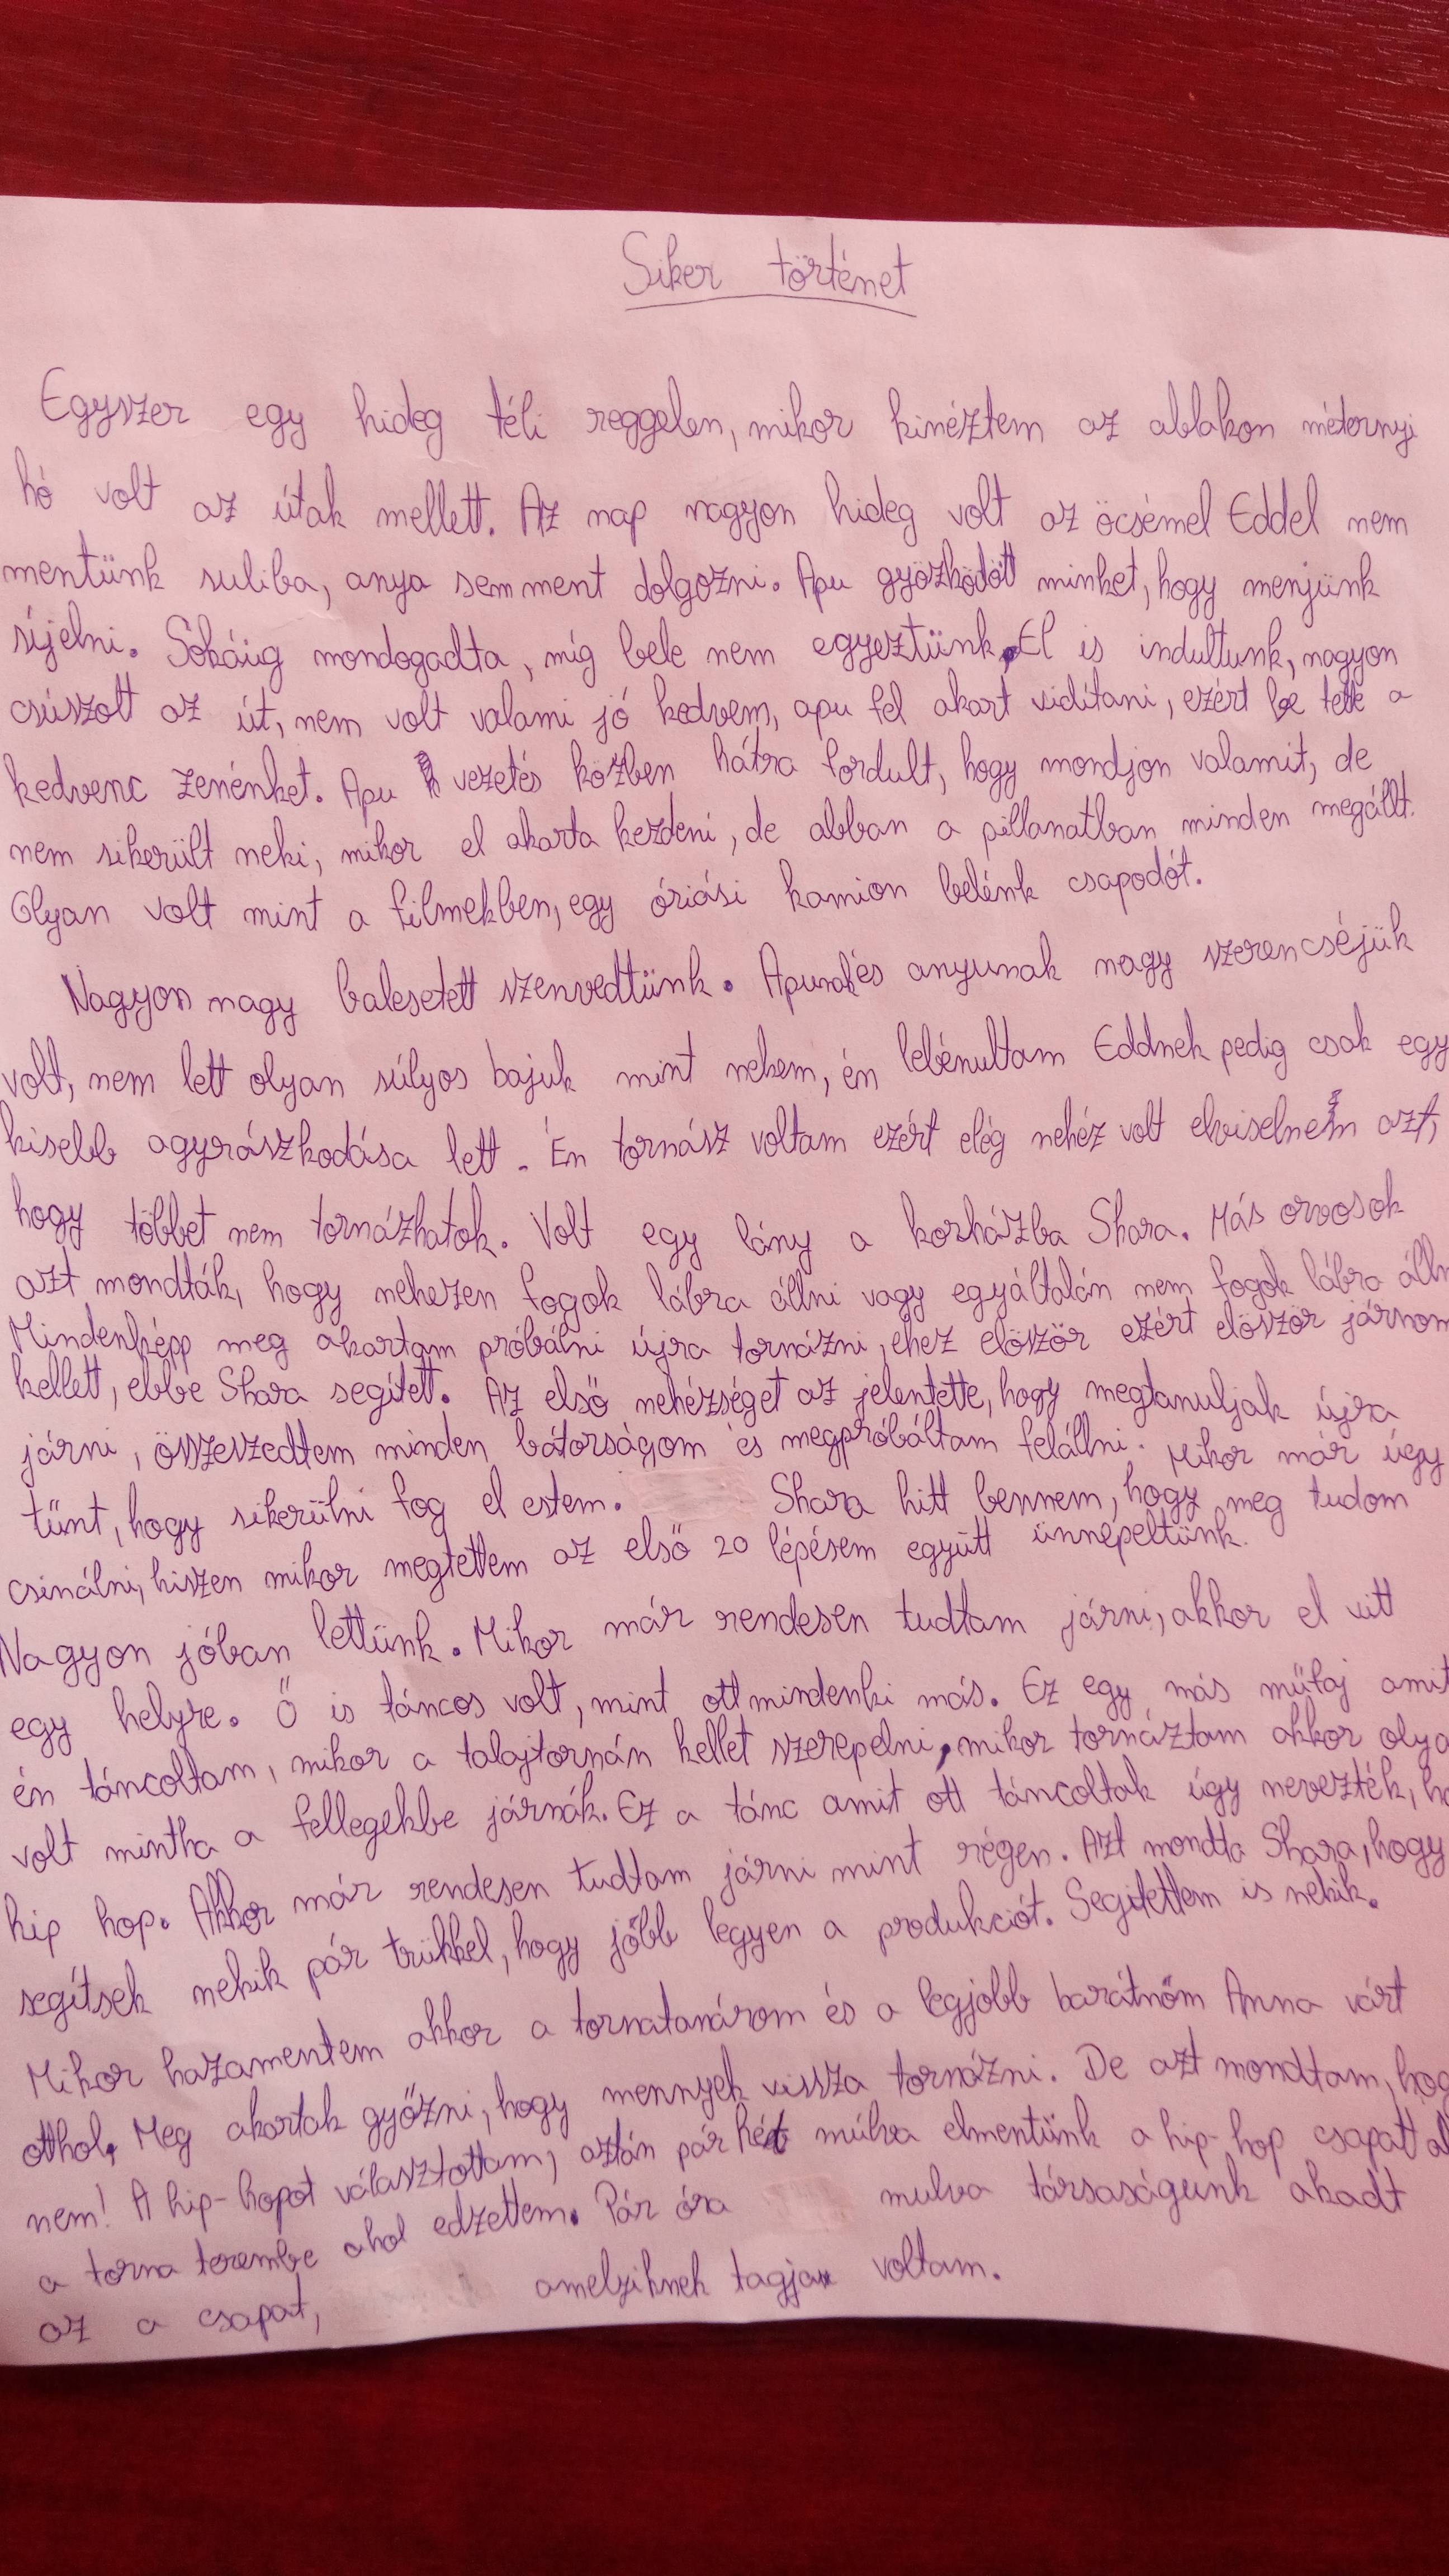 Siker történet
Egyszer egy hideg téli reggelen, mikor kinéztem az ablakon méternyi
hó volt az útak mellett. Az nap nagyon hideg volt az öcsémel Eddel nem
mentünk suliba, anya sem ment dolgozni. Apu gyözködött minket, hogy menjünk
síjelni. Sokáig mondogadta, míg bele nem egyeztünk. El is indultunk, nagyon
csúszott az út, nem volt valami jó kedvem, apu fel akart vidítani, ezért be tette a
kedvenc zenénket. Apu vezetés közben hátra fordult, hogy mondjon valamit, de
nem sikerült neki, mikor el akarta kezdeni, de abban a pillanatban minden megállt.
Olyan volt mint a filmekben, egy óriási kamion belénk csapodót.
Nagyon nagy balesetett szenvedtünk. Apunak és anyunak nagy szerencséjük
volt, nem lett olyan súlyos bajuk mint nekem, én lebénultam Eddnek pedig csak egy
kisebb agyrászkodása lett. Én tornász voltam ezért elég nehéz volt elviselnem azt,
hogy többet nem tornázhatok. Volt egy lány a korházba Shara. Más orvosok
azt mondták, hogy nehezen fogok lábra állni vagy egyáltalán nem fogok lábra álln
Mindenképp meg akartam próbálni újra tornázni, ehez elöször ezért elöször járnom
kellett, ebbe Shara segített. Az első nehézséget az jelentette, hogy megtanuljak újra
járni, összeszedtem minden bátorságom és megpróbáltam felállni. Mikor már úgy
tűnt, hogy sikerülni fog el estem. Shara hitt bennem, hogy meg tudom
csinálni, hiszen mikor megtettem az első 20 lépésem együtt ünnepeltünk.
Nagyon jóban lettünk. Mikor már rendesen tudtam járni, akkor el vitt
egy helyre. Ő is táncos volt, mint ott mindenki más. Ez egy más műfaj amit
én táncoltam, mikor a talajtornán kellet szerepelni, mikor tornáztam akkor olya
volt mintha a fellegekbe járnák. Ez a tánc amit ott táncoltak úgy nevezték, ho
hip hop. Akkor már rendesen tudtam járni mint régen. Azt mondta Shara, hogy
segítsek nekik pár trükkel, hogy jőbb legyen a produkciót. Segitettem is nekik.
Mikor hazamentem akkor a tornatanárom és a legjobb barátnőm Anna várt
otthol. Meg akartak győzni, hogy mennyek vissza tornázni. De azt mondtam, hog
nem! A hip-hopot választottam, aztán pár hét múlva elmentünk a hip-hop csapattal
a torna terembe ahol edzettem. Pár óra mulva társaságunk akadt
az a csapat, amelyiknek tagja voltam.